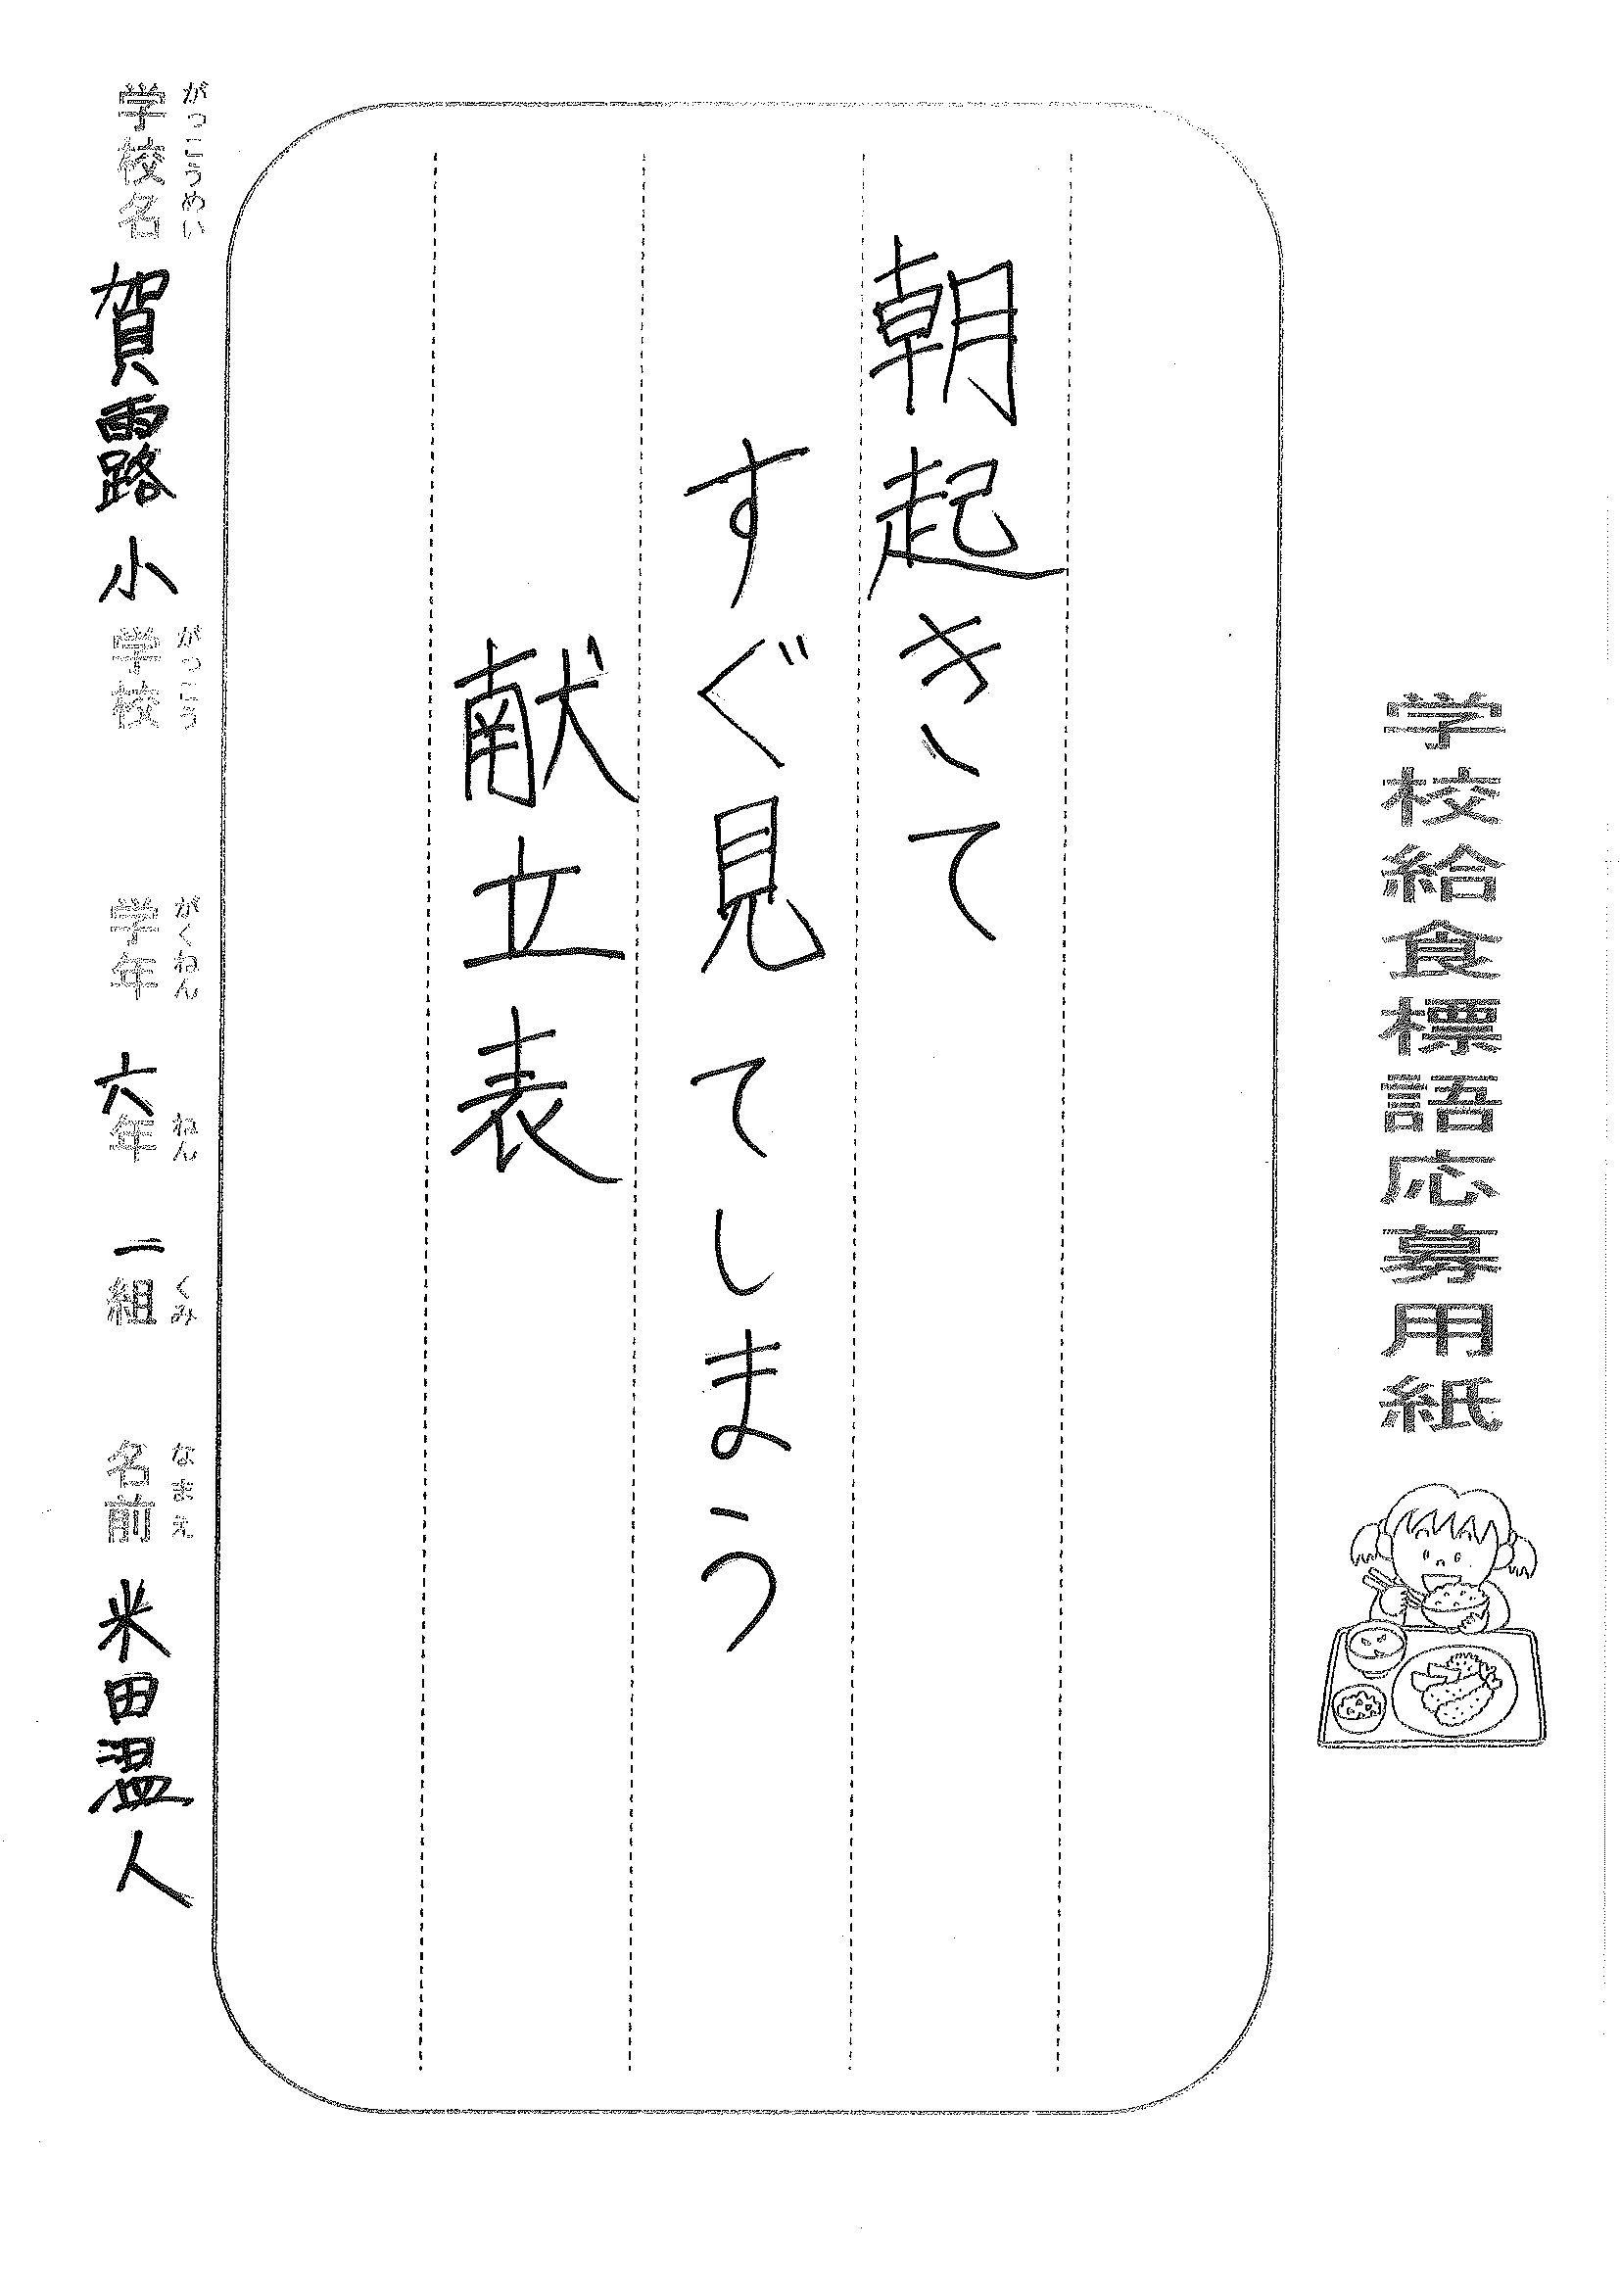 学校給食標語応募用紙
朝起きて
すぐ見てしまう
献立表
がっこうめい
学校名 賀露小
がっこう
学校
がくねん
学年 六
ねん
年 一
くみ
組
なまえ
名前 米田温人